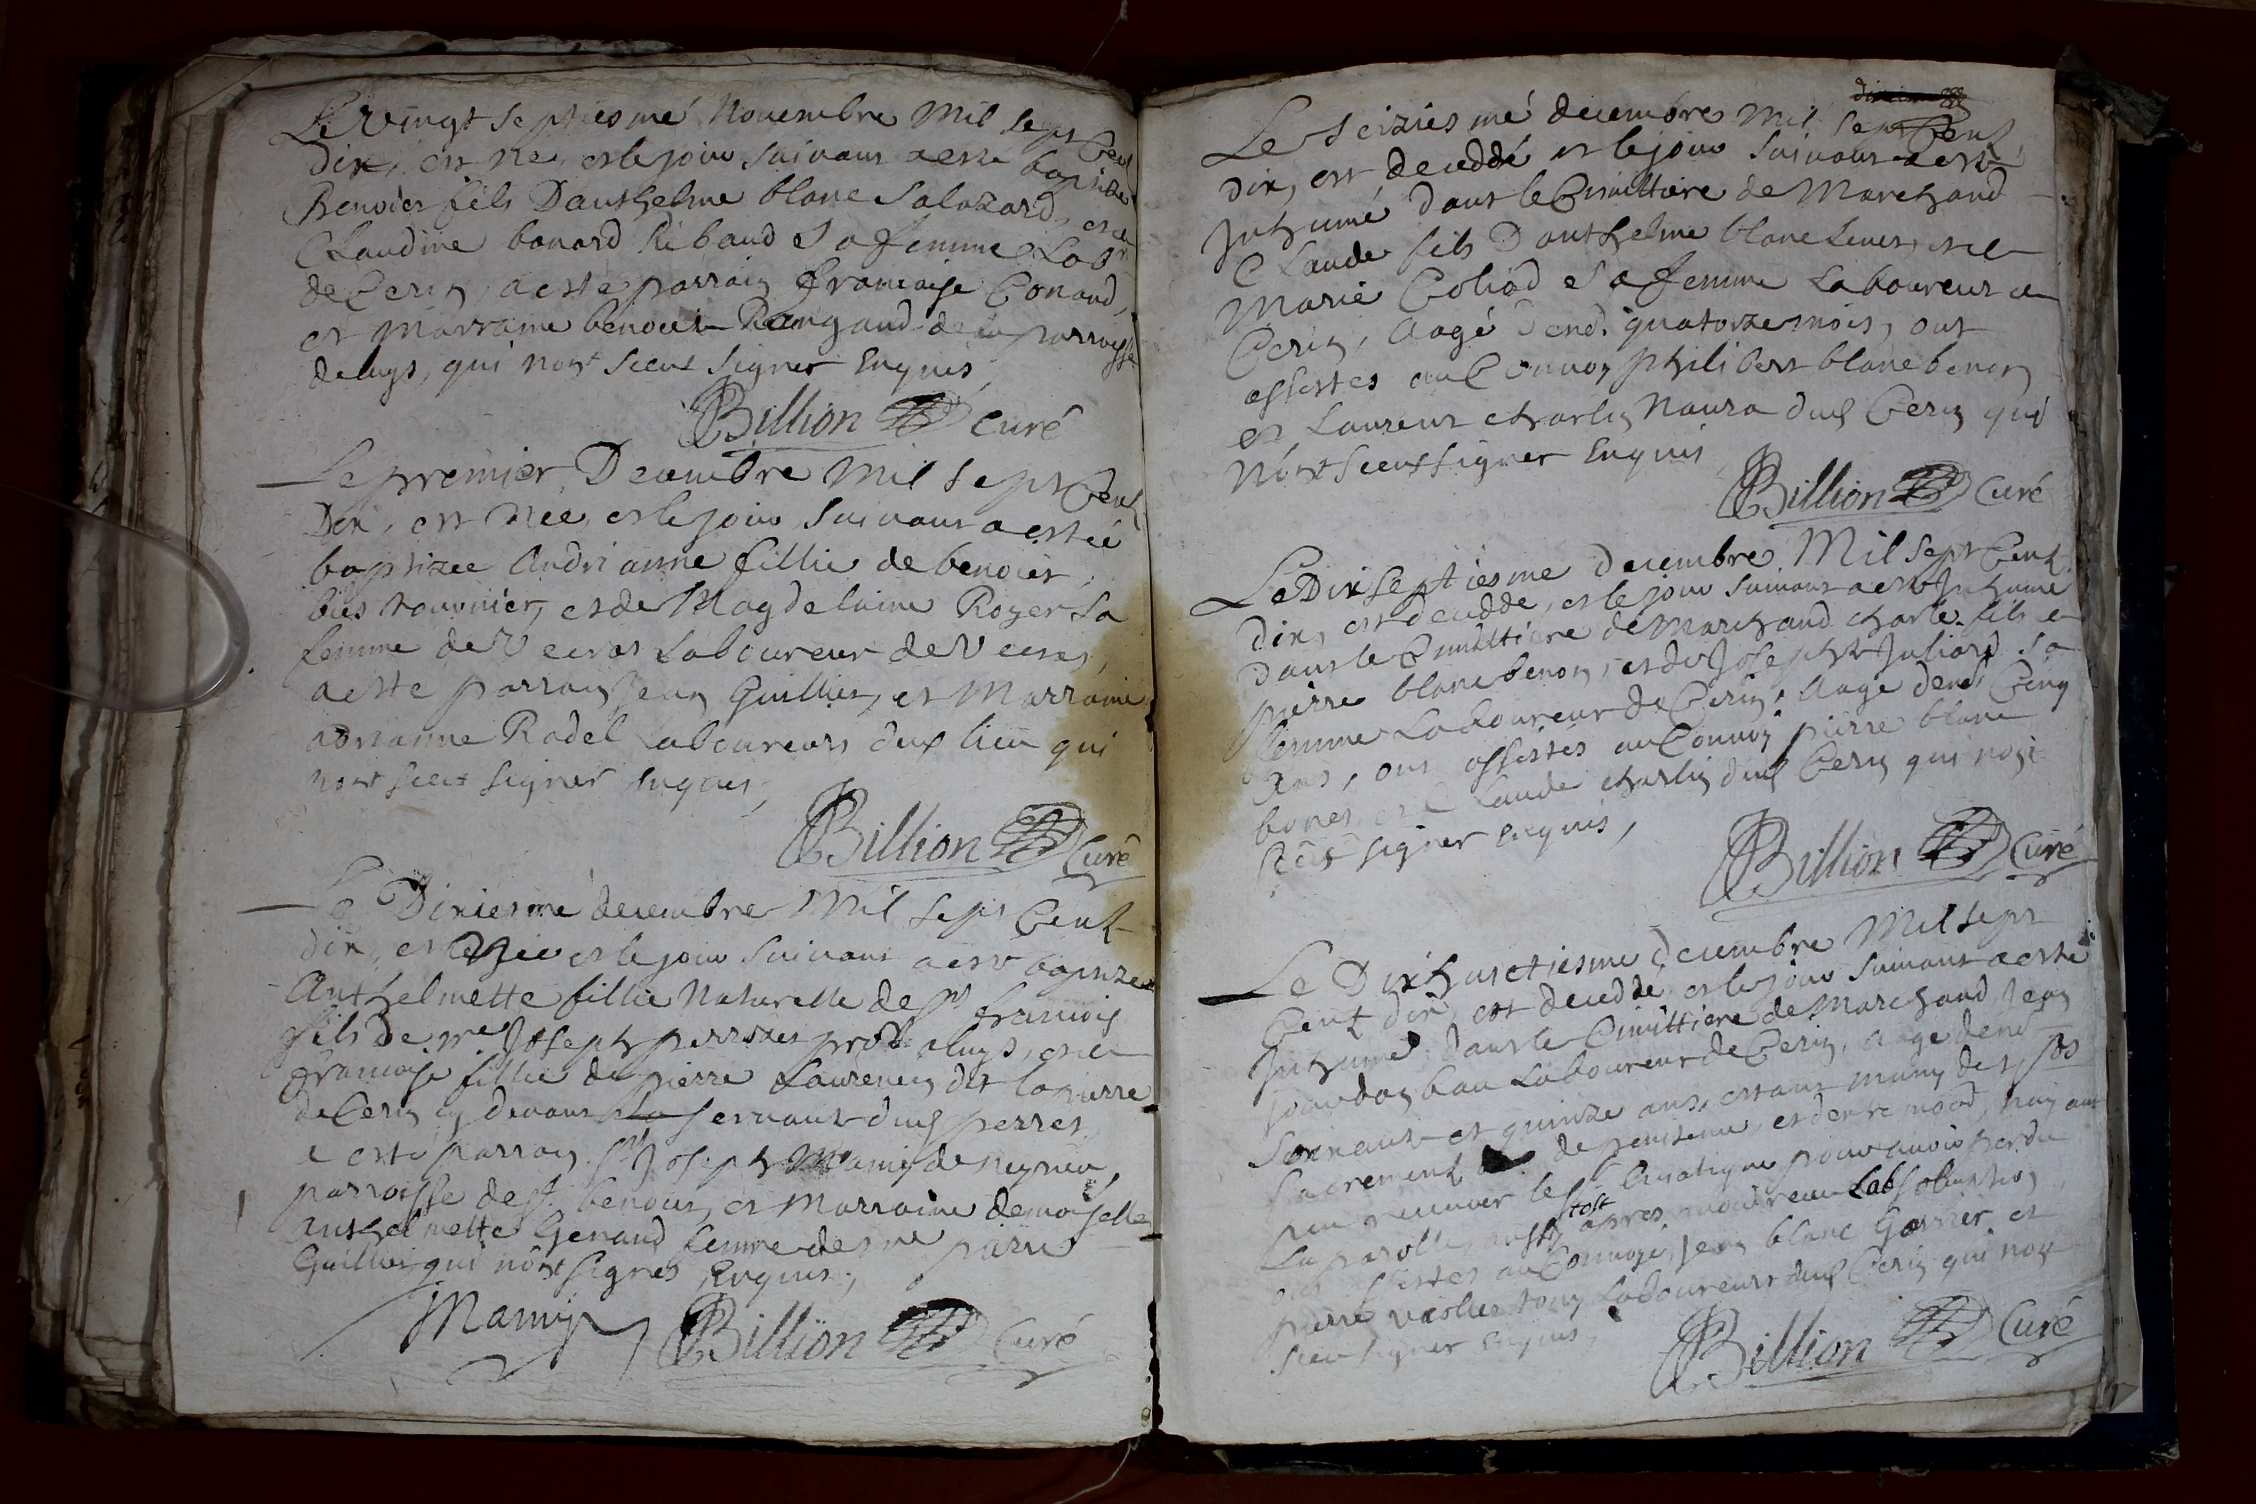 Le vingt septiesmé Novembre Mil sept Cent
dix, est né, et le jour suivant a esté baptizé
Benoiet fils Danthelme blanc Salazard, et de
Claudine bonard Ribaud sa femme Labr
de Cerin, a esté parrain francoise Conand,
et marraine benoite Rangaud de la parroisse
de Luys, qui nont sceut signer Enquis,
Billion Curé
Le premier Decembre Mil sept Cent
Dix, est née, et le jour suivant a estée
baptizee Andrianne fillie de benoiet
et de Magdelaine Royer sa
femme de Laboureur de
a esté parrain Jean Guilliet, et Marraine
adrianne Radel Laboureurs dud lieu qui
nont sceut signer enquis,
Billion Curé
Le Dixiesmé decembre Mil sept Cent
dix, est née et le jour suivant a esté baptizee
Anthelmette fillie Naturelle de sr francois
fils de Mre Joseph perret de Luys, et de
francoise fillie de pierre Laurencin dit lapierre
de Cerin cy devant servante dud perret
a esté parrain sr Joseph Mamy de
parroisse de st benoiet, et Marraine demoiselle
Anthelmette Genand femme de Mre pierre
Guilliet qui nont signés Enquis,
Mamy Billion Curé
Le seiziesmé decembre Mil sept Cent
Dix, est deceddé et le jour suivant a esté
Inhumé dans le Cimittiere de Marchand
Claude fils Danthelme blanc et de
Marie Goliod sa femme Laboureur de
Cerin, Aagé denv. quatorze mois, ont
assistés au Convoy philibert blanc benon
et Laurent charlin Naura dud Cerin qui
Nont sceut signer Enquis
Billion Curé
Le Dixseptiesme decembre Mil sept Cent
dix, est decedde, et le jour suivant a esté Inhumé
dans le Cimittiere de Marchand charle fils de
pierre blanc benon, et de Josephte Juliard sa
femme Laboureur de Cerin, Aagé denv. Cinq
Ans, ont assistés au Convoy pierre blanc
bonet, et Claude charlin dud Cerin qui nont
sceut signer enquis,
Billion Curé
Le Dixhuictiesme decembre Mil sept
Cent dix, est decedde et le jour suivant a esté
Inhumé dans le Cimittiere de Marchand Jean
Laboureur de Cerin, Aagé denv.
soixante et quinze ans, estant muny des sts
sacrements de penitence, et dextre monction, nayant
peu recevoir le st Viatique pour avoir perdu
la parolle aussy tost apres avoir receu Labsolution
ont assistés au Convoye, Jean blanc Garnier et
pierre Laboureurs dud Cerin qui nont
sceu signer enquis,
Billion Curé